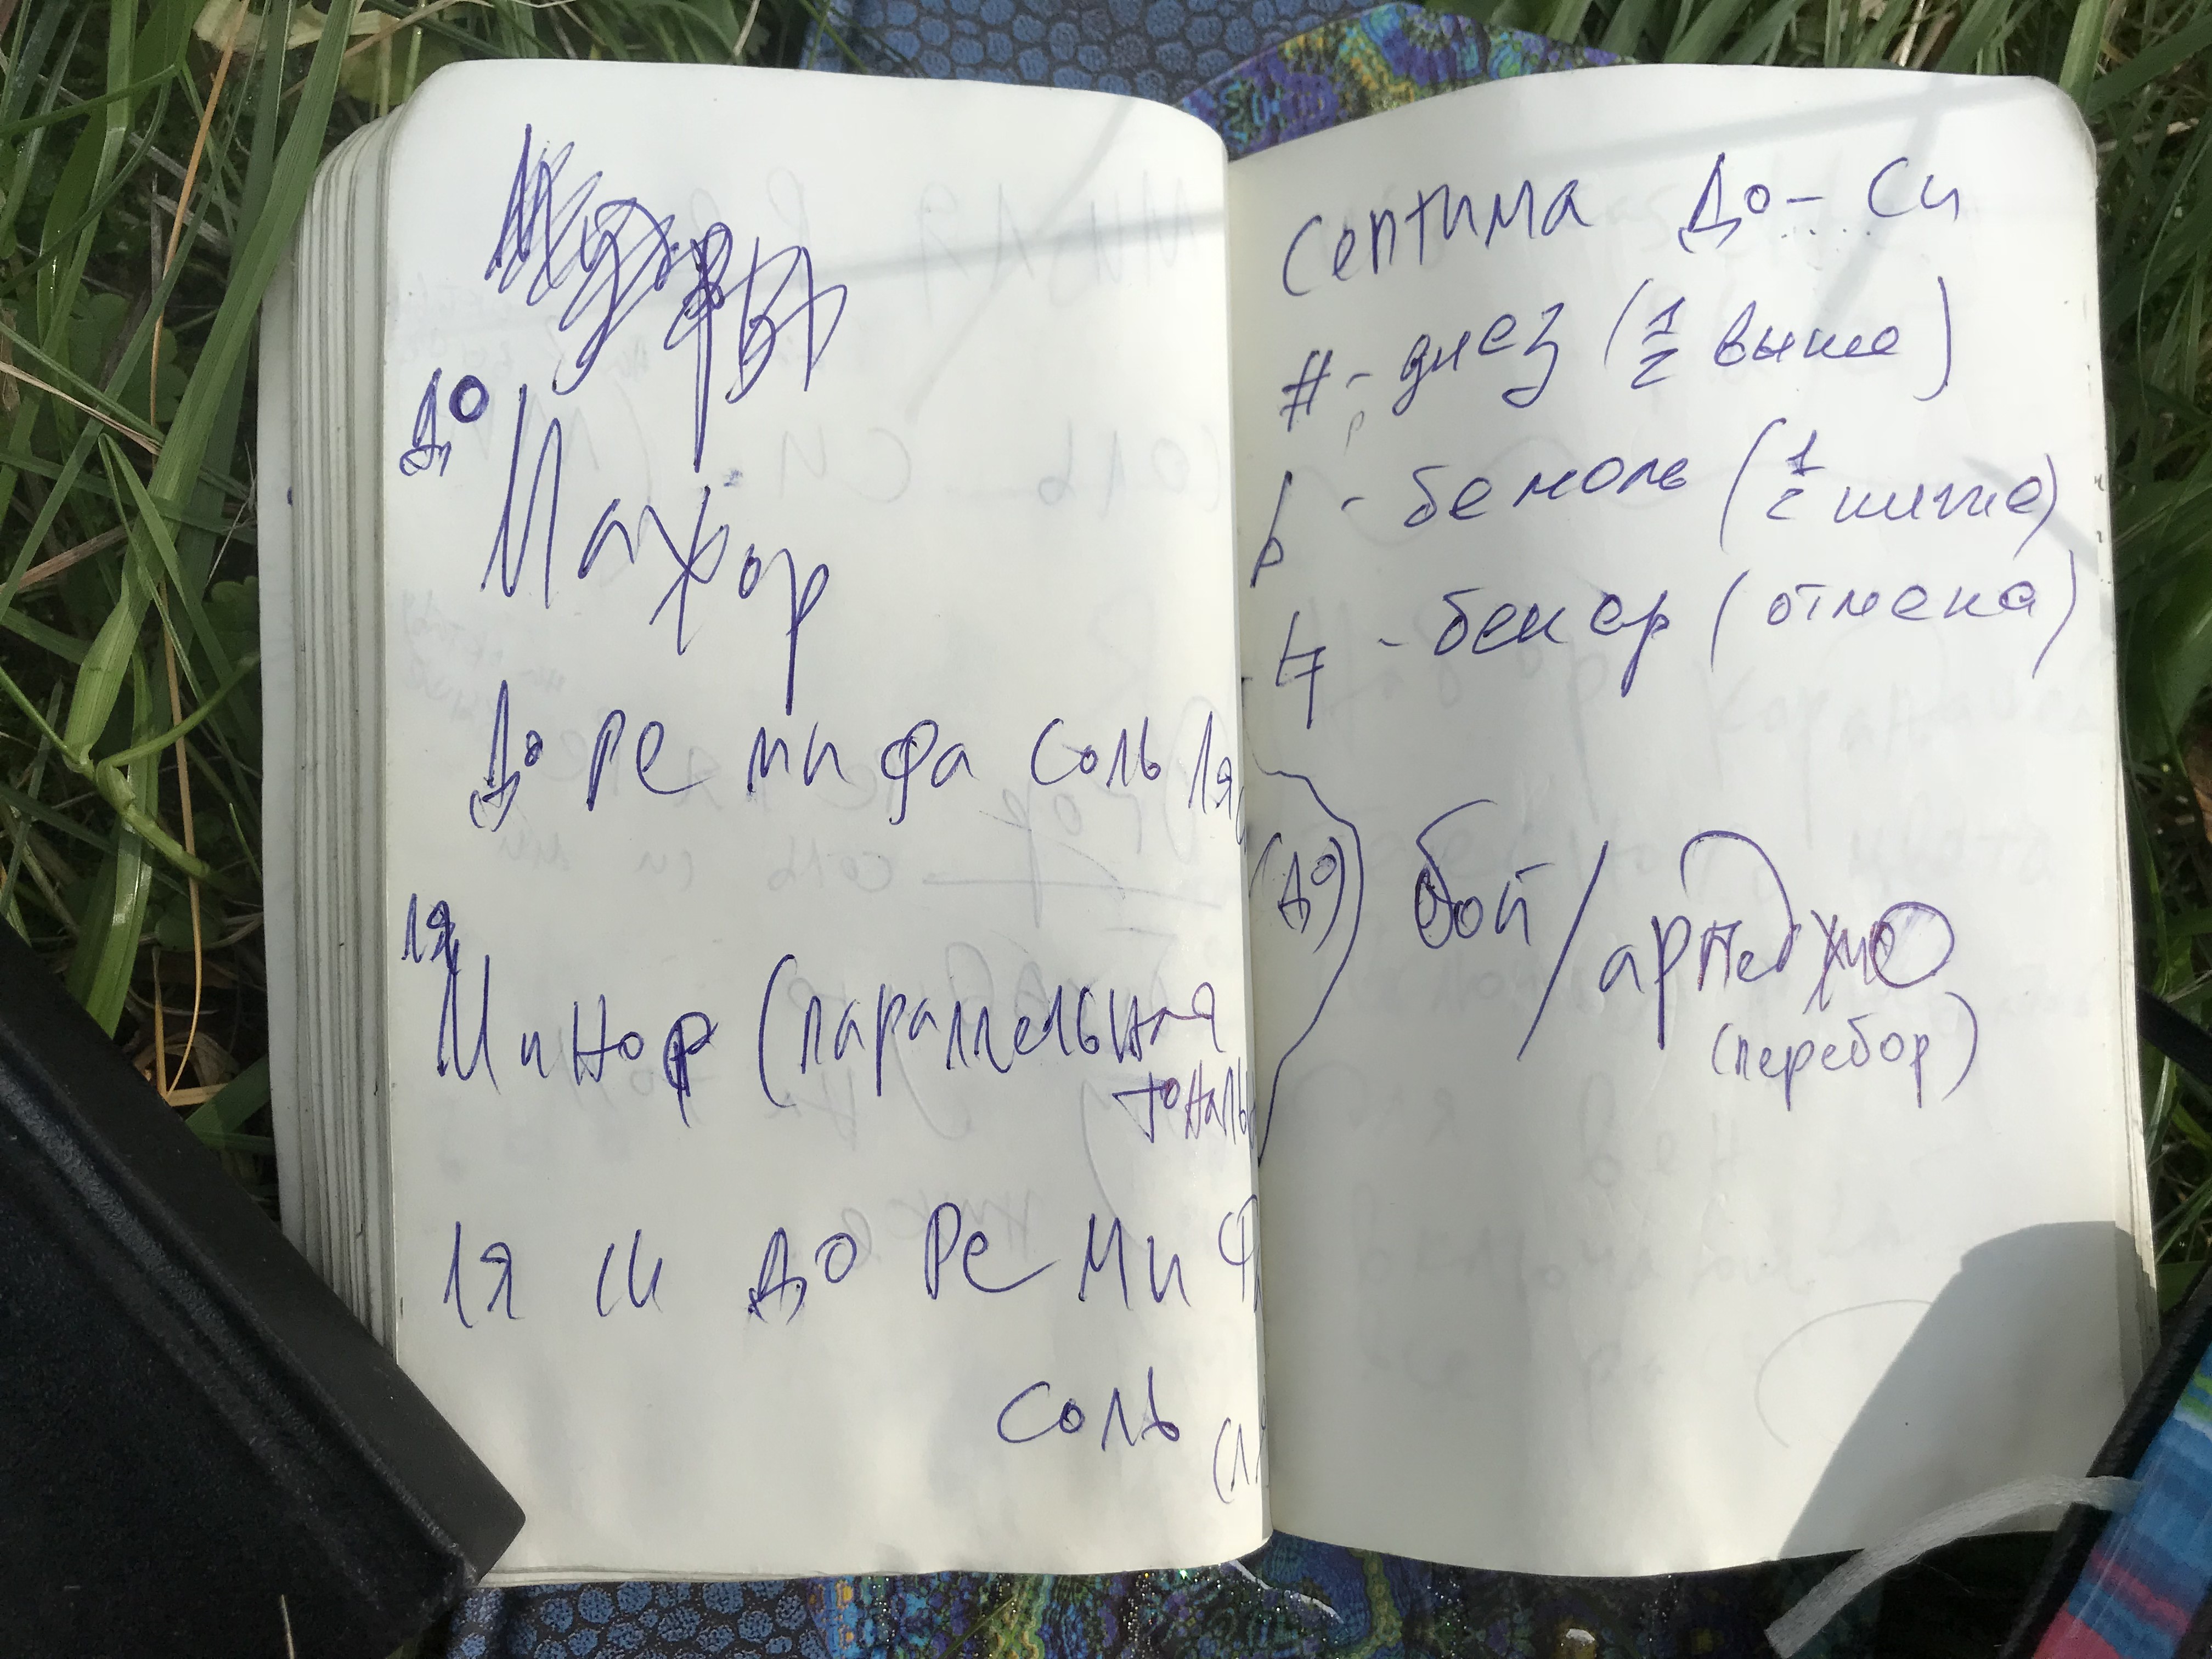 До
Мажор
До ре ми фа соль ля
(До)
ля
Минор (параллельная
тональн
ля си до ре ми
соль (ля
Септима До - Си
# - диез (1/2 выше)
b - бемоль (1/2 ниже)
♮ - бекер (отмена)
бой / арпеджио
(перебор)